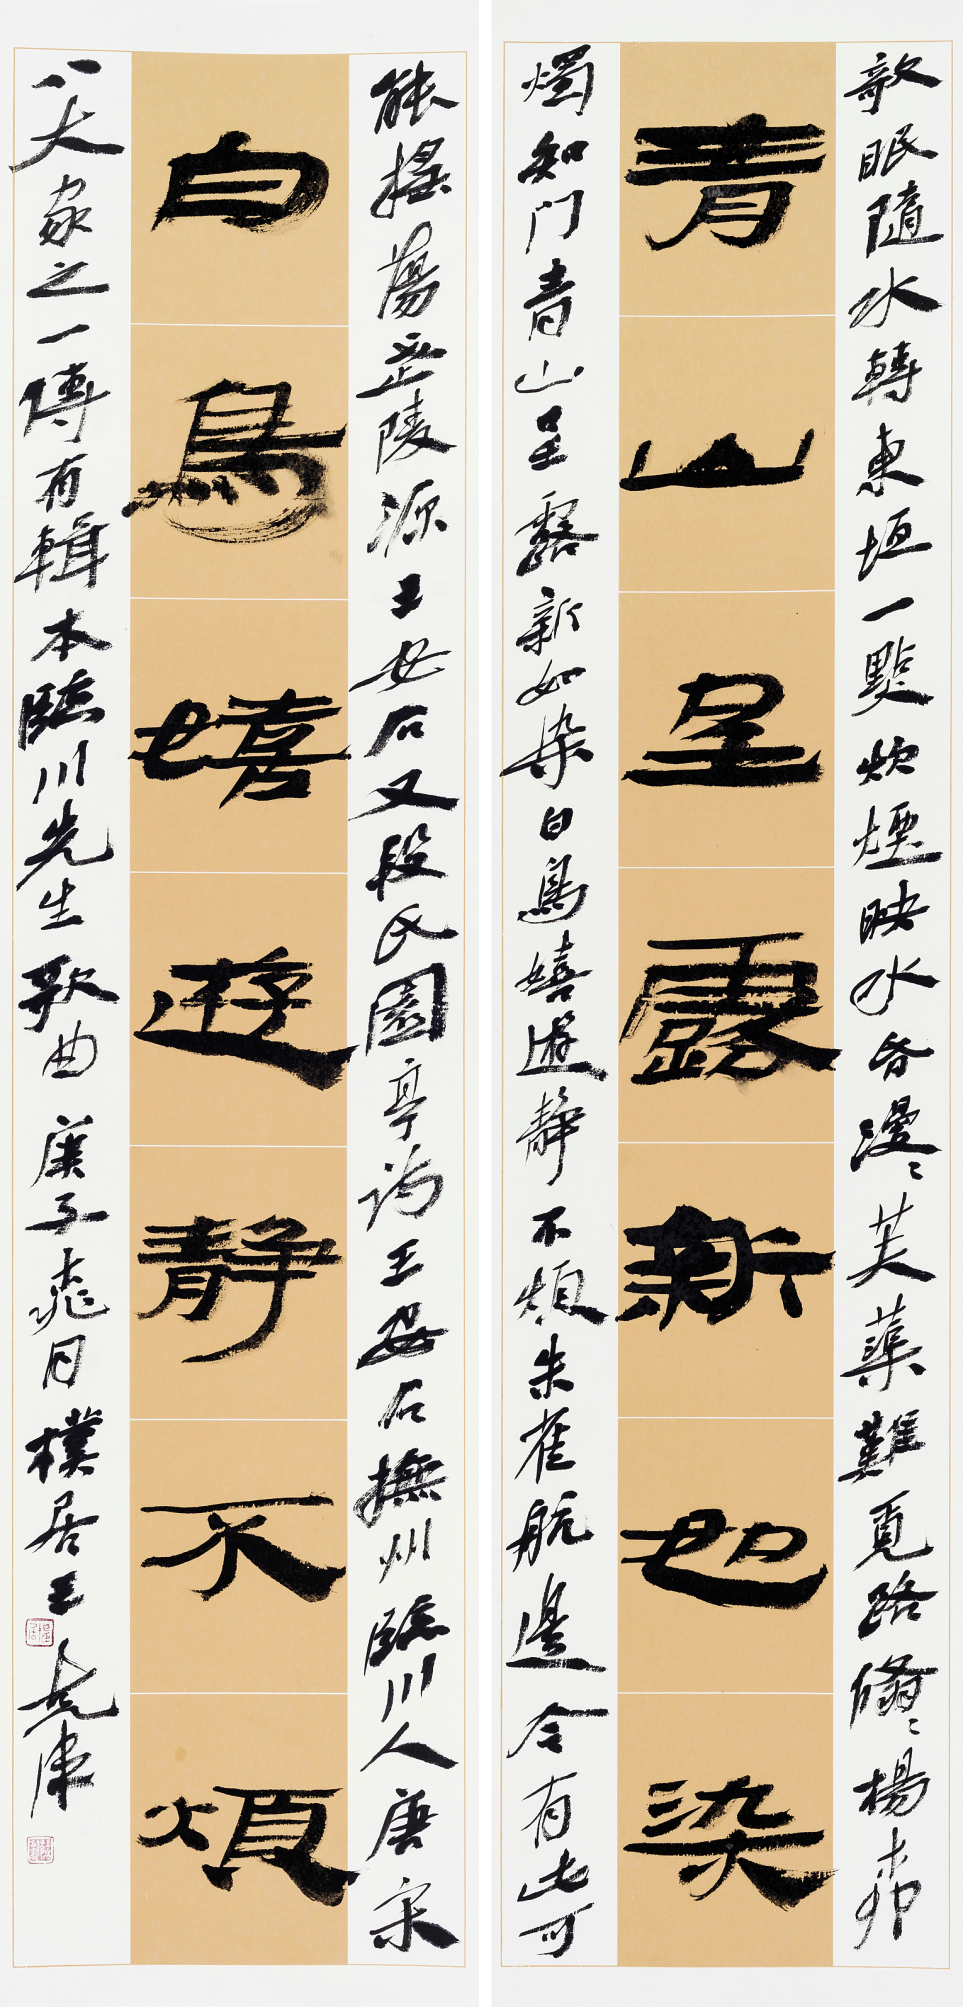 欹眠隨水轉東垣一點炊煙映水昏漫〻芙蕖難覓路翛〻楊柳
青山呈露新如染
獨知門青山呈露新如染白鳥嬉遊靜不煩朱雀航邊今有此可
能搖蕩武陵源王安石又段氏園亭詩王安石撫州臨川人唐宋
白鳥嬉遊静不煩
八大家之一傳有輯本臨川先生歌曲庚子桃月樸居王